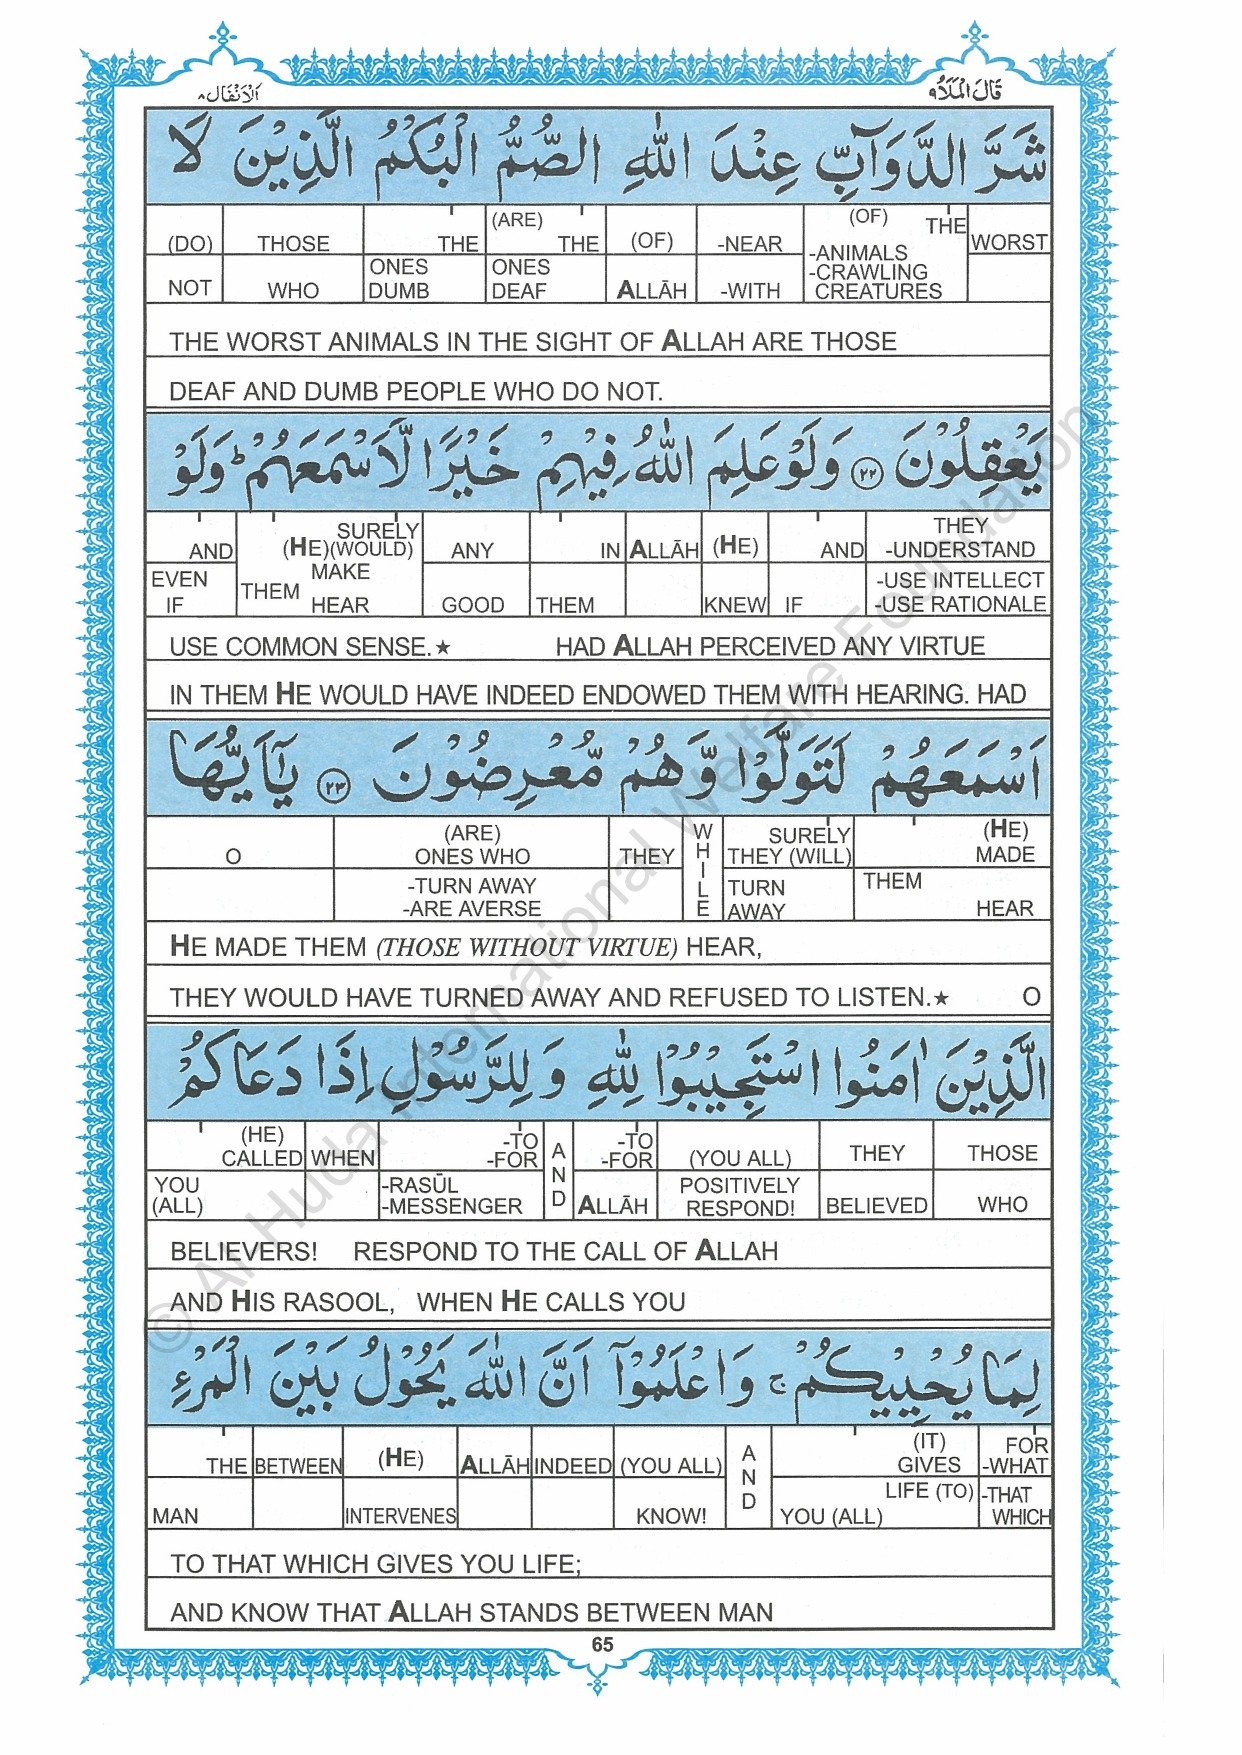 اَلْاَنْفَال ٨ قَالَ الْمَلَاُ ٩
شَرَّ الدَّوَآبِّ عِنْدَ اللّٰهِ الصُّمُّ الْبُكْمُ الَّذِيْنَ لَا
(DO) THOSE THE (ARE) THE (OF) -NEAR (OF) THE WORST
NOT WHO ONES DUMB ONES DEAF ALLĀH -WITH -ANIMALS -CRAWLING CREATURES
THE WORST ANIMALS IN THE SIGHT OF ALLAH ARE THOSE
DEAF AND DUMB PEOPLE WHO DO NOT.
يَعْقِلُوْنَ ٢٢ وَلَوْ عَلِمَ اللّٰهُ فِيْهِمْ خَيْرًا لَّاَسْمَعَهُمْ ط وَلَوْ
AND SURELY (HE)(WOULD) ANY IN ALLĀH (HE) AND THEY -UNDERSTAND
EVEN IF THEM MAKE HEAR GOOD THEM KNEW IF -USE INTELLECT -USE RATIONALE
USE COMMON SENSE.★ HAD ALLAH PERCEIVED ANY VIRTUE
IN THEM HE WOULD HAVE INDEED ENDOWED THEM WITH HEARING. HAD
اَسْمَعَهُمْ لَتَوَلَّوْا وَّهُمْ مُّعْرِضُوْنَ ٢٣ يٰٓاَيُّهَا
O (ARE) ONES WHO THEY WHILE SURELY THEY (WILL) (HE) MADE
-TURN AWAY -ARE AVERSE TURN AWAY THEM HEAR
HE MADE THEM (THOSE WITHOUT VIRTUE) HEAR,
THEY WOULD HAVE TURNED AWAY AND REFUSED TO LISTEN.★ O
الَّذِيْنَ اٰمَنُوا اسْتَجِيْبُوْا لِلّٰهِ وَ لِلرَّسُوْلِ اِذَا دَعَاكُمْ
(HE) CALLED WHEN -TO -FOR AND -TO -FOR (YOU ALL) THEY THOSE
YOU (ALL) -RASŪL -MESSENGER ALLĀH POSITIVELY RESPOND! BELIEVED WHO
BELIEVERS! RESPOND TO THE CALL OF ALLAH
AND HIS RASOOL, WHEN HE CALLS YOU
لِمَا يُحْيِيْكُمْ ج وَاعْلَمُوْٓا اَنَّ اللّٰهَ يَحُوْلُ بَيْنَ الْمَرْءِ
THE BETWEEN (HE) ALLĀH INDEED (YOU ALL) AND (IT) GIVES FOR -WHAT
MAN INTERVENES KNOW! YOU (ALL) LIFE (TO) -THAT WHICH
TO THAT WHICH GIVES YOU LIFE;
AND KNOW THAT ALLAH STANDS BETWEEN MAN
65
© Al Huda International Welfare Foundation